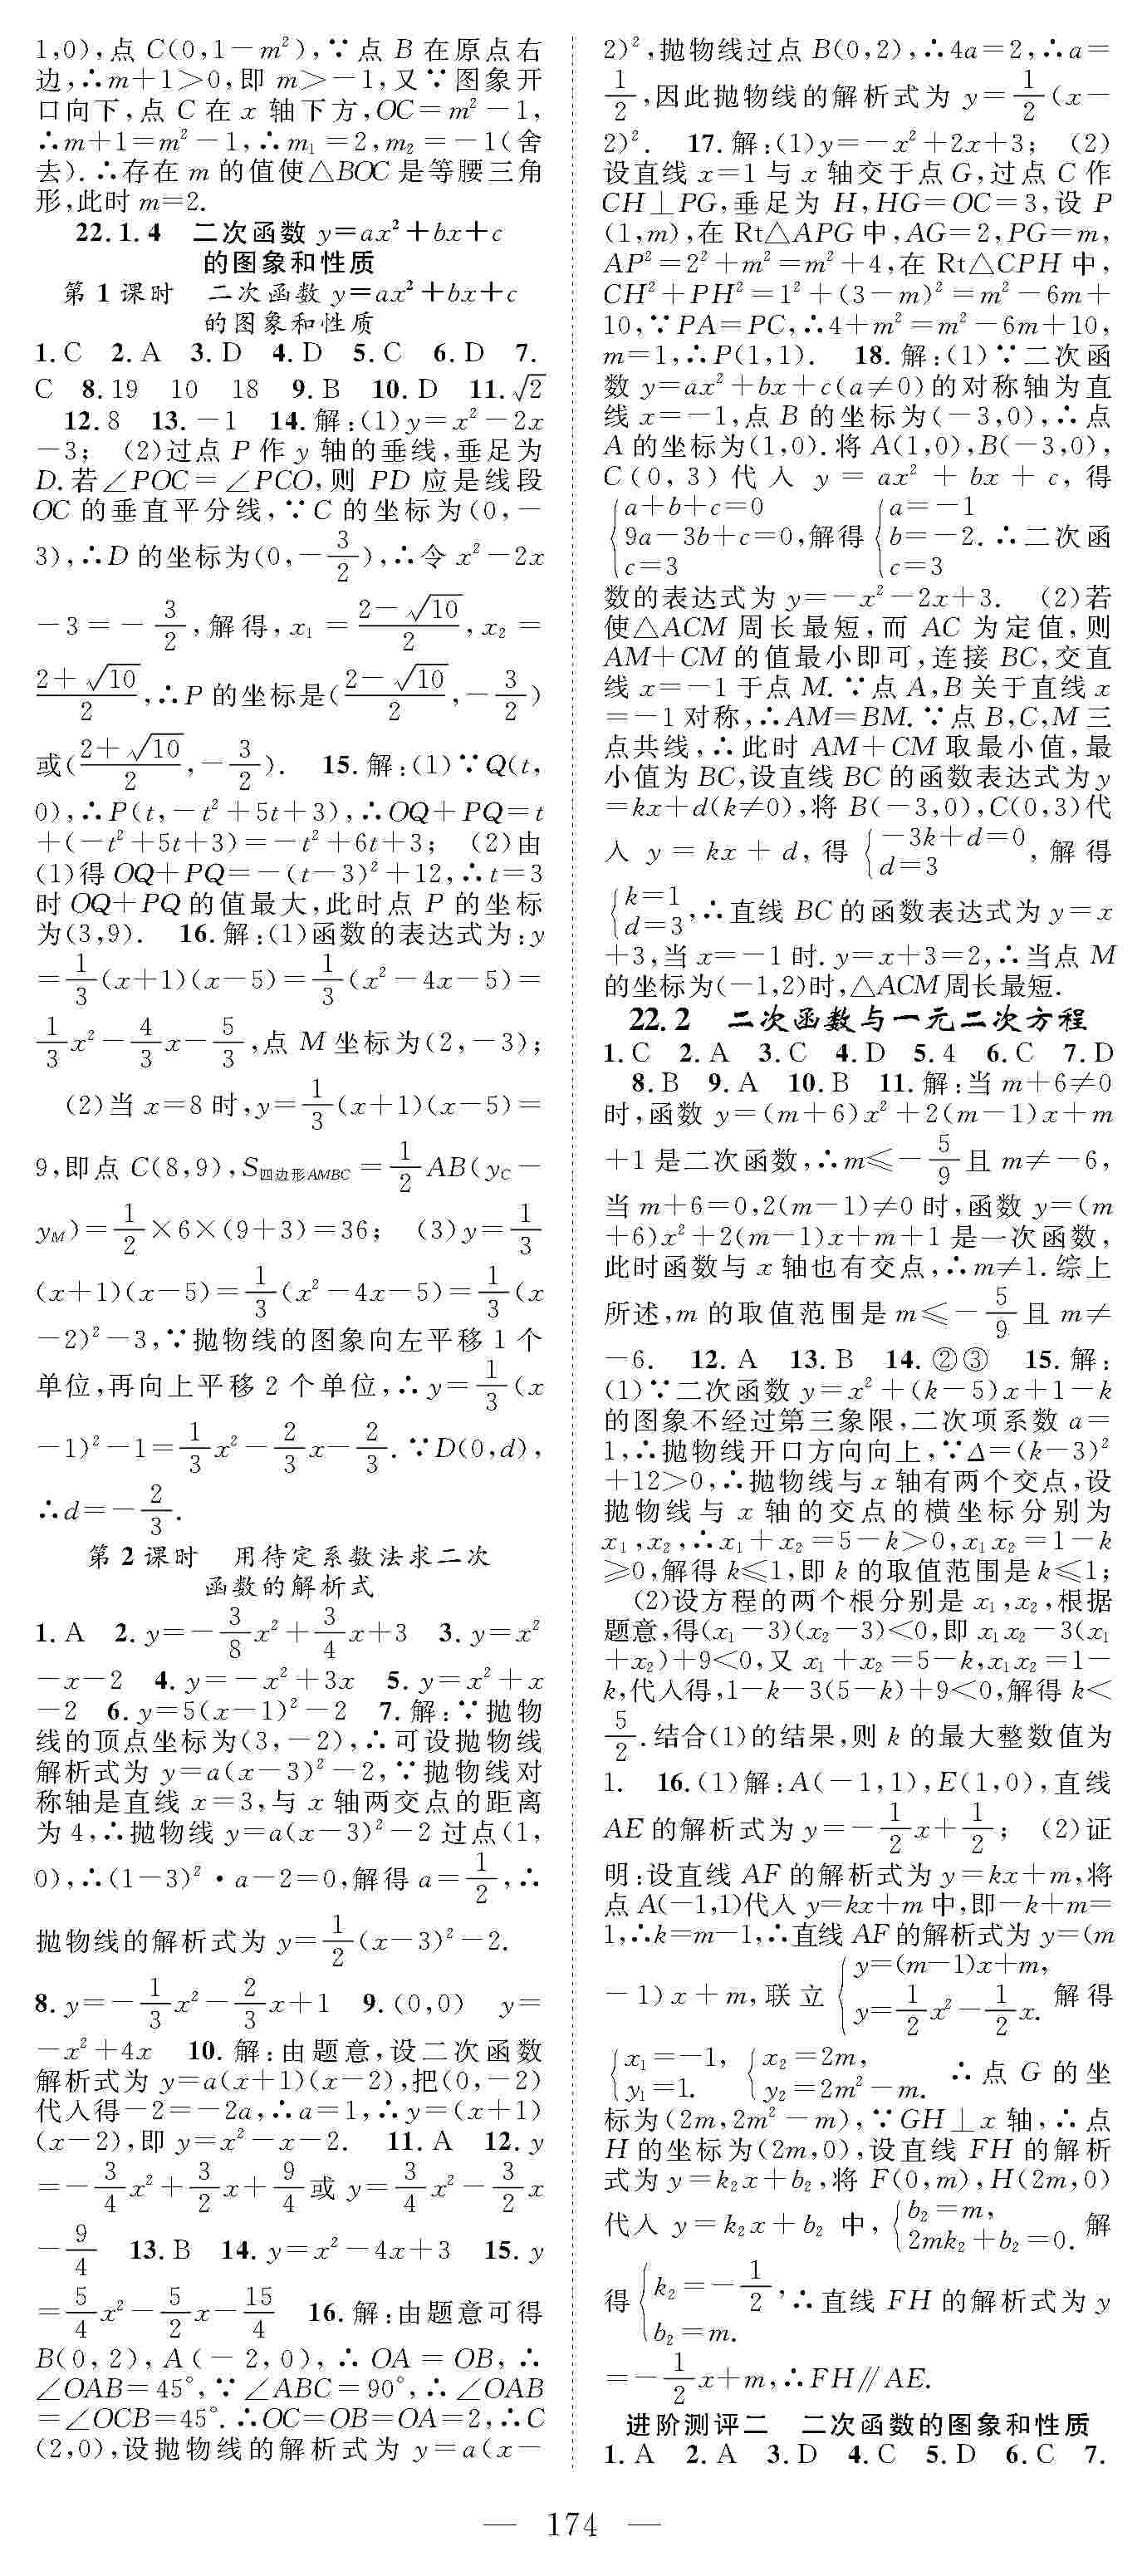 1,0),点 C(0,1－m²),∵点 B 在原点右
边,∴m＋1＞0,即 m＞－1,又∵图象开
口向下,点 C 在 x 轴下方,OC＝m²－1,
∴m＋1＝m²－1,∴m₁＝2,m₂＝－1(舍
去).∴存在 m 的值使△BOC 是等腰三角
形,此时 m＝2.
22.1.4 二次函数 y＝ax²＋bx＋c
的图象和性质
第 1 课时 二次函数 y＝ax²＋bx＋c
的图象和性质
1.C 2.A 3.D 4.D 5.C 6.D 7.
C 8.19 10 18 9.B 10.D 11.√2
12.8 13.－1 14.解:(1)y＝x²－2x
－3; (2)过点 P 作 y 轴的垂线,垂足为
D.若∠POC＝∠PCO,则 PD 应是线段
OC 的垂直平分线,∵C 的坐标为(0,－
3),∴D 的坐标为(0,－3/2),∴令 x²－2x
－3＝－3/2,解得,x₁＝(2－√10)/2,x₂＝
(2＋√10)/2,∴P 的坐标是((2－√10)/2,－3/2)
或((2＋√10)/2,－3/2). 15.解:(1)∵Q(t,
0),∴P(t,－t²＋5t＋3),∴OQ＋PQ＝t
＋(－t²＋5t＋3)＝－t²＋6t＋3; (2)由
(1)得 OQ＋PQ＝－(t－3)²＋12,∴t＝3
时 OQ＋PQ 的值最大,此时点 P 的坐标
为(3,9). 16.解:(1)函数的表达式为:y
＝1/3(x＋1)(x－5)＝1/3(x²－4x－5)＝
1/3x²－4/3x－5/3,点 M 坐标为(2,－3);
(2)当 x＝8 时,y＝1/3(x＋1)(x－5)＝
9,即点 C(8,9),S四边形AMBC＝1/2AB(yC－
yM)＝1/2×6×(9＋3)＝36; (3)y＝1/3
(x＋1)(x－5)＝1/3(x²－4x－5)＝1/3(x
－2)²－3,∵抛物线的图象向左平移 1 个
单位,再向上平移 2 个单位,∴y＝1/3(x
－1)²－1＝1/3x²－2/3x－2/3.∵D(0,d),
∴d＝－2/3.
第 2 课时 用待定系数法求二次
函数的解析式
1.A 2.y＝－3/8x²＋3/4x＋3 3.y＝x²
－x－2 4.y＝－x²＋3x 5.y＝x²＋x
－2 6.y＝5(x－1)²－2 7.解:∵抛物
线的顶点坐标为(3,－2),∴可设抛物线
解析式为 y＝a(x－3)²－2,∵抛物线对
称轴是直线 x＝3,与 x 轴两交点的距离
为 4,∴抛物线 y＝a(x－3)²－2 过点(1,
0),∴(1－3)²·a－2＝0,解得 a＝1/2,∴
抛物线的解析式为 y＝1/2(x－3)²－2.
8.y＝－1/3x²－2/3x＋1 9.(0,0) y＝
－x²＋4x 10.解:由题意,设二次函数
解析式为 y＝a(x＋1)(x－2),把(0,－2)
代入得－2＝－2a,∴a＝1,∴y＝(x＋1)
(x－2),即 y＝x²－x－2. 11.A 12.y
＝－3/4x²＋3/2x＋9/4或 y＝3/4x²－3/2x
－9/4 13.B 14.y＝x²－4x＋3 15.y
＝5/4x²－5/2x－15/4 16.解:由题意可得
B(0,2),A(－2,0),∴OA＝OB,∴
∠OAB＝45°,∵∠ABC＝90°,∴∠OAB
＝∠OCB＝45°.∴OC＝OB＝OA＝2,∴C
(2,0),设抛物线的解析式为 y＝a(x－
2)²,抛物线过点 B(0,2),∴4a＝2,∴a＝
1/2,因此抛物线的解析式为 y＝1/2(x－
2)². 17.解:(1)y＝－x²＋2x＋3; (2)
设直线 x＝1 与 x 轴交于点 G,过点 C 作
CH⊥PG,垂足为 H,HG＝OC＝3,设 P
(1,m),在 Rt△APG 中,AG＝2,PG＝m,
AP²＝2²＋m²＝m²＋4,在 Rt△CPH 中,
CH²＋PH²＝1²＋(3－m)²＝m²－6m＋
10,∵PA＝PC,∴4＋m²＝m²－6m＋10,
m＝1,∴P(1,1). 18.解:(1)∵二次函
数 y＝ax²＋bx＋c(a≠0)的对称轴为直
线 x＝－1,点 B 的坐标为(－3,0),∴点
A 的坐标为(1,0).将 A(1,0),B(－3,0),
C(0,3)代入 y＝ax²＋bx＋c,得
{a＋b＋c＝0 {a＝－1
9a－3b＋c＝0,解得 b＝－2. ∴二次函
c＝3 c＝3
数的表达式为 y＝－x²－2x＋3. (2)若
使△ACM 周长最短,而 AC 为定值,则
AM＋CM 的值最小即可,连接 BC,交直
线 x＝－1 于点 M.∵点 A,B 关于直线 x
＝－1 对称,∴AM＝BM.∵点 B,C,M 三
点共线,∴此时 AM＋CM 取最小值,最
小值为 BC,设直线 BC 的函数表达式为 y
＝kx＋d(k≠0),将 B(－3,0),C(0,3)代
入 y＝kx＋d,得 {－3k＋d＝0 d＝3 ,解得
{k＝1 d＝3,∴直线 BC 的函数表达式为 y＝x
＋3,当 x＝－1 时.y＝x＋3＝2,∴当点 M
的坐标为(－1,2)时,△ACM 周长最短.
22.2 二次函数与一元二次方程
1.C 2.A 3.C 4.D 5.4 6.C 7.D
8.B 9.A 10.B 11.解:当 m＋6≠0
时,函数 y＝(m＋6)x²＋2(m－1)x＋m
＋1 是二次函数,∴m≤－5/9且 m≠－6,
当 m＋6＝0,2(m－1)≠0 时,函数 y＝(m
＋6)x²＋2(m－1)x＋m＋1 是一次函数,
此时函数与 x 轴也有交点,∴m≠1.综上
所述,m 的取值范围是 m≤－5/9且 m≠
－6. 12.A 13.B 14.②③ 15.解:
(1)∵二次函数 y＝x²＋(k－5)x＋1－k
的图象不经过第三象限,二次项系数 a＝
1,∴抛物线开口方向向上,∵Δ＝(k－3)²
＋12＞0,∴抛物线与 x 轴有两个交点,设
抛物线与 x 轴的交点的横坐标分别为
x₁,x₂,∴x₁＋x₂＝5－k＞0,x₁x₂＝1－k
≥0,解得 k≤1,即 k 的取值范围是 k≤1;
(2)设方程的两个根分别是 x₁,x₂,根据
题意,得(x₁－3)(x₂－3)＜0,即 x₁x₂－3(x₁
＋x₂)＋9＜0,又 x₁＋x₂＝5－k,x₁x₂＝1－
k,代入得,1－k－3(5－k)＋9＜0,解得 k＜
5/2.结合(1)的结果,则 k 的最大整数值为
1. 16.(1)解:A(－1,1),E(1,0),直线
AE 的解析式为 y＝－1/2x＋1/2; (2)证
明:设直线 AF 的解析式为 y＝kx＋m,将
点 A(－1,1)代入 y＝kx＋m 中,即－k＋m＝
1,∴k＝m－1,∴直线 AF 的解析式为 y＝(m
－1)x＋m,联立 {y＝(m－1)x＋m, y＝1/2x²－1/2x. 解得
{x₁＝－1, y₁＝1. {x₂＝2m, y₂＝2m²－m. ∴点 G 的坐
标为(2m,2m²－m),∵GH⊥x 轴,∴点
H 的坐标为(2m,0),设直线 FH 的解析
式为 y＝k₂x＋b₂,将 F(0,m),H(2m,0)
代入 y＝k₂x＋b₂ 中,{b₂＝m, 2mk₂＋b₂＝0. 解
得 {k₂＝－1/2, b₂＝m. ∴直线 FH 的解析式为 y
＝－1/2x＋m,∴FH∥AE.
进阶测评二 二次函数的图象和性质
1.A 2.A 3.D 4.C 5.D 6.C 7.
— 174 —